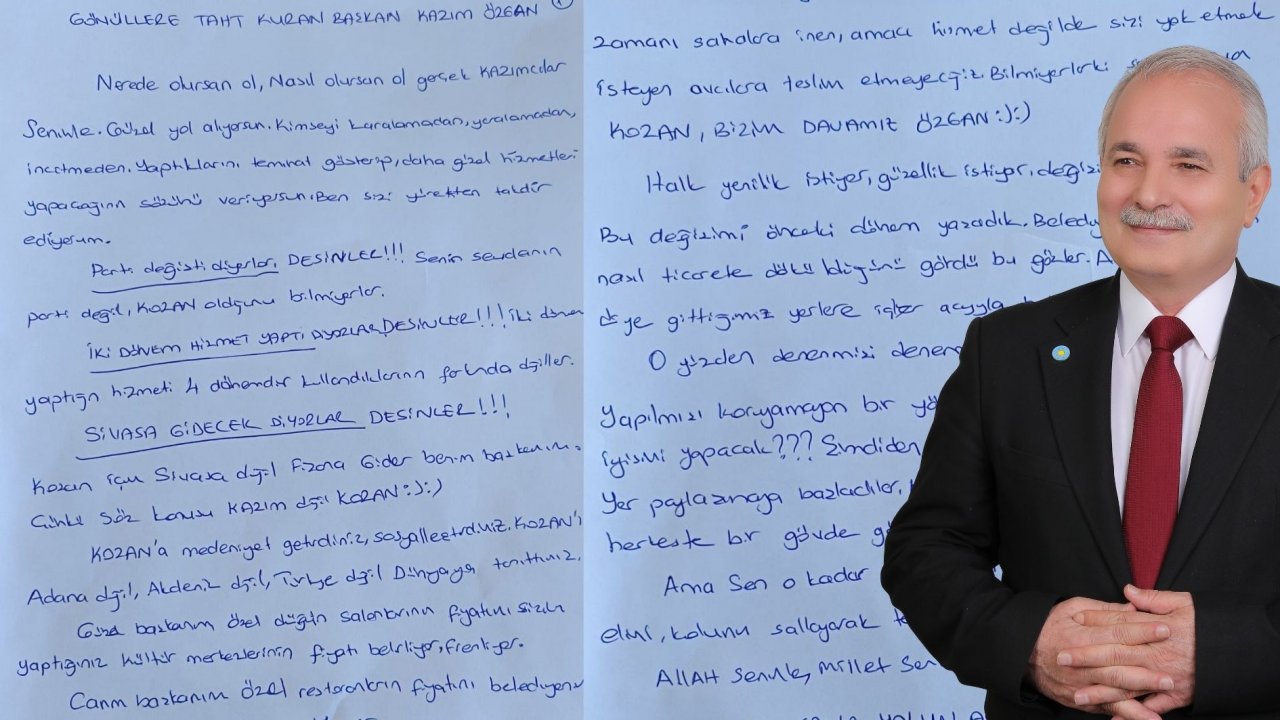 GÖNÜLLERE TAHT KURAN BAŞKAN KAZIM ÖZGAN 1
Nerede olursan ol, Nasıl olursan ol gerçek KAZIMCILAR
Seninle. Güzel yol alıyorsun. Kimseyi karalamadan, yaralamadan,
incitmeden. Yaptıklarını teminat gösterip, daha güzel hizmetleri
yapacağının sözünü veriyorsun. Ben sizi yürekten takdir
ediyorum.
Parti değişti diyorlar, DESİNLER!!! Senin sevdanın
parti değil, KOZAN olduğunu bilmiyorlar.
İKİ DÖNEM HİZMET YAPTI DİYORLAR, DESİNLER!!! İki dönem
yaptığın hizmeti 4 dönemdir kullandıklarının farkında değiller.
SİVASA GİDECEK DİYORLAR DESİNLER!!!
Kozan için Sivasa değil Fizana Gider benim başkanım.
Çünkü Söz konusu KAZIM değil KOZAN:):)
KOZAN'a medeniyet getirdiniz, sosyalleştirdiniz. KOZAN'ı
Adana değil, Akdeniz değil, Türkiye değil Dünyaya tanıttınız.
Güzel başkanım özel düğün salonlarının fiyatını sizin
yaptığınız kültür merkezlerinin fiyatı belirliyor, frenliyor.
Canım başkanım özel restorantların fiyatını belediyenin
zamanı sahalara inen, amacı hizmet değilde sizi yok etmek
isteyen avcılara teslim etmeyeceğiz. Bilmiyorlarki
KOZAN, BİZİM DAVAMIZ ÖZGAN:):)
Halk yenilik istiyor, güzellik istiyor,
Bu değişimi önceki dönem yaşadık.
nasıl ticarete döküldüğünü gördü bu gözler.
diye gittiğimiz yerlere içler acısıyla
O yüzden denenmişi
Yapılmışı koruyamayan bir
iyisini yapacak??? Şimdiden
Yer paylaşmaya başladılar,
herkeste bir gövde
Ama Sen o kadar
elini, kolunu sallayarak
ALLAH Seninle, Millet